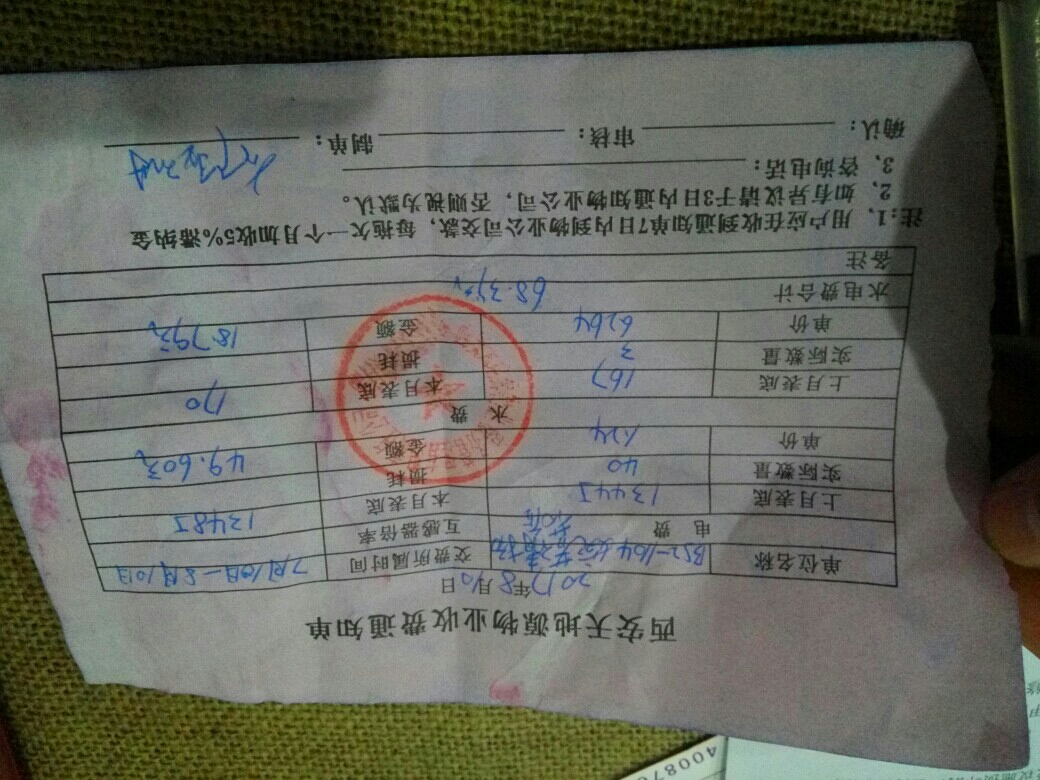 西安天地源物业收费通知单
2017年8月10日
单位名称 B52-104 交费所属时间 7月10日-8月10日
电 费 互感器倍率
上月表底 13445 本月表底 13485
实际数量 40 损耗
单价 1.24 金额 49.60元
水 费
上月表底 167 本月表底 170
实际数量 3 损耗
单价 6.264 金额 18.79元
水电费合计 68.39元
备注
注:1、用户应在收到通知单7日内到物业公司交款,每拖欠一个月加收5%滞纳金
2、如有异议请于3日内通知物业公司,否则视为默认。
3、咨询电话:
确认: 审核: 制单:
40087